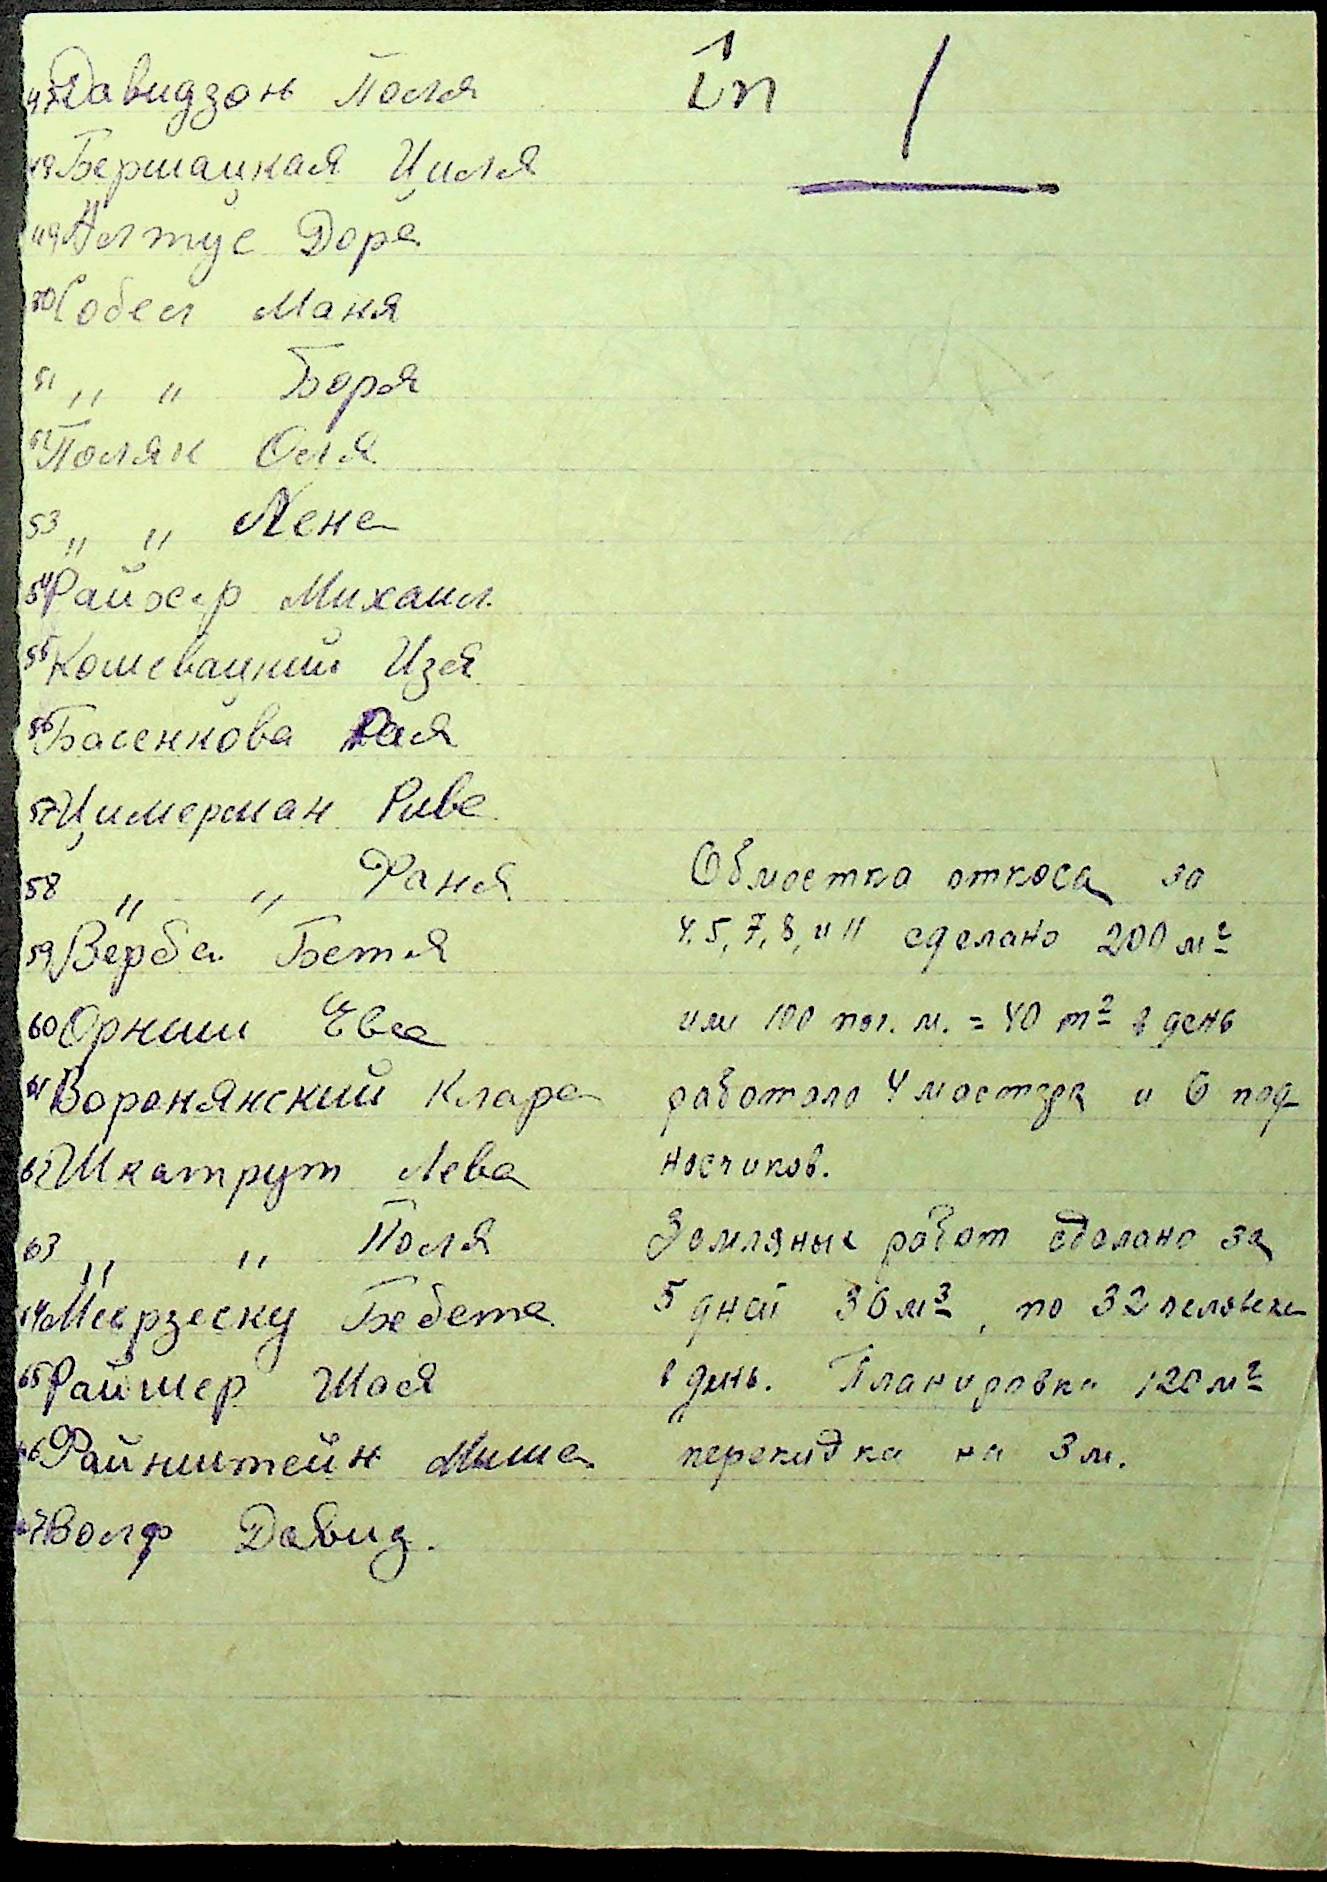 47 Давидзонь Поля
în /
48 Бершацкая Циля
49 Алтус Дора
50 Собел Маня
51 " " Боря
52 Поляк Оля
53 " " Лена
54 Райхер Михаил.
55 Кошевацкий Изя
56 Басенкова Рая
57 Цимерман Рива
58 " " Фаня
59 Верба Бетя
60 Орниш Ева
61 Воронянский Клара
62 Шкатрут Лева
63 " " Поля
64 Меерзеску Бебета
65 Райшер Шася
66 Райнштейн Миша
67 Волф Давид.
Обмостка откоса за
4, 5, 7, 8, и 11 сделано 200 м²
или 100 пог. м. = 40 m² в день
работало 4 мостора и 6 под
носчиков.
Земляных работ сделано за
5 дней 36 м³, по 32 человека
в день. Планировка 120 м²
перекидка на 3 м.